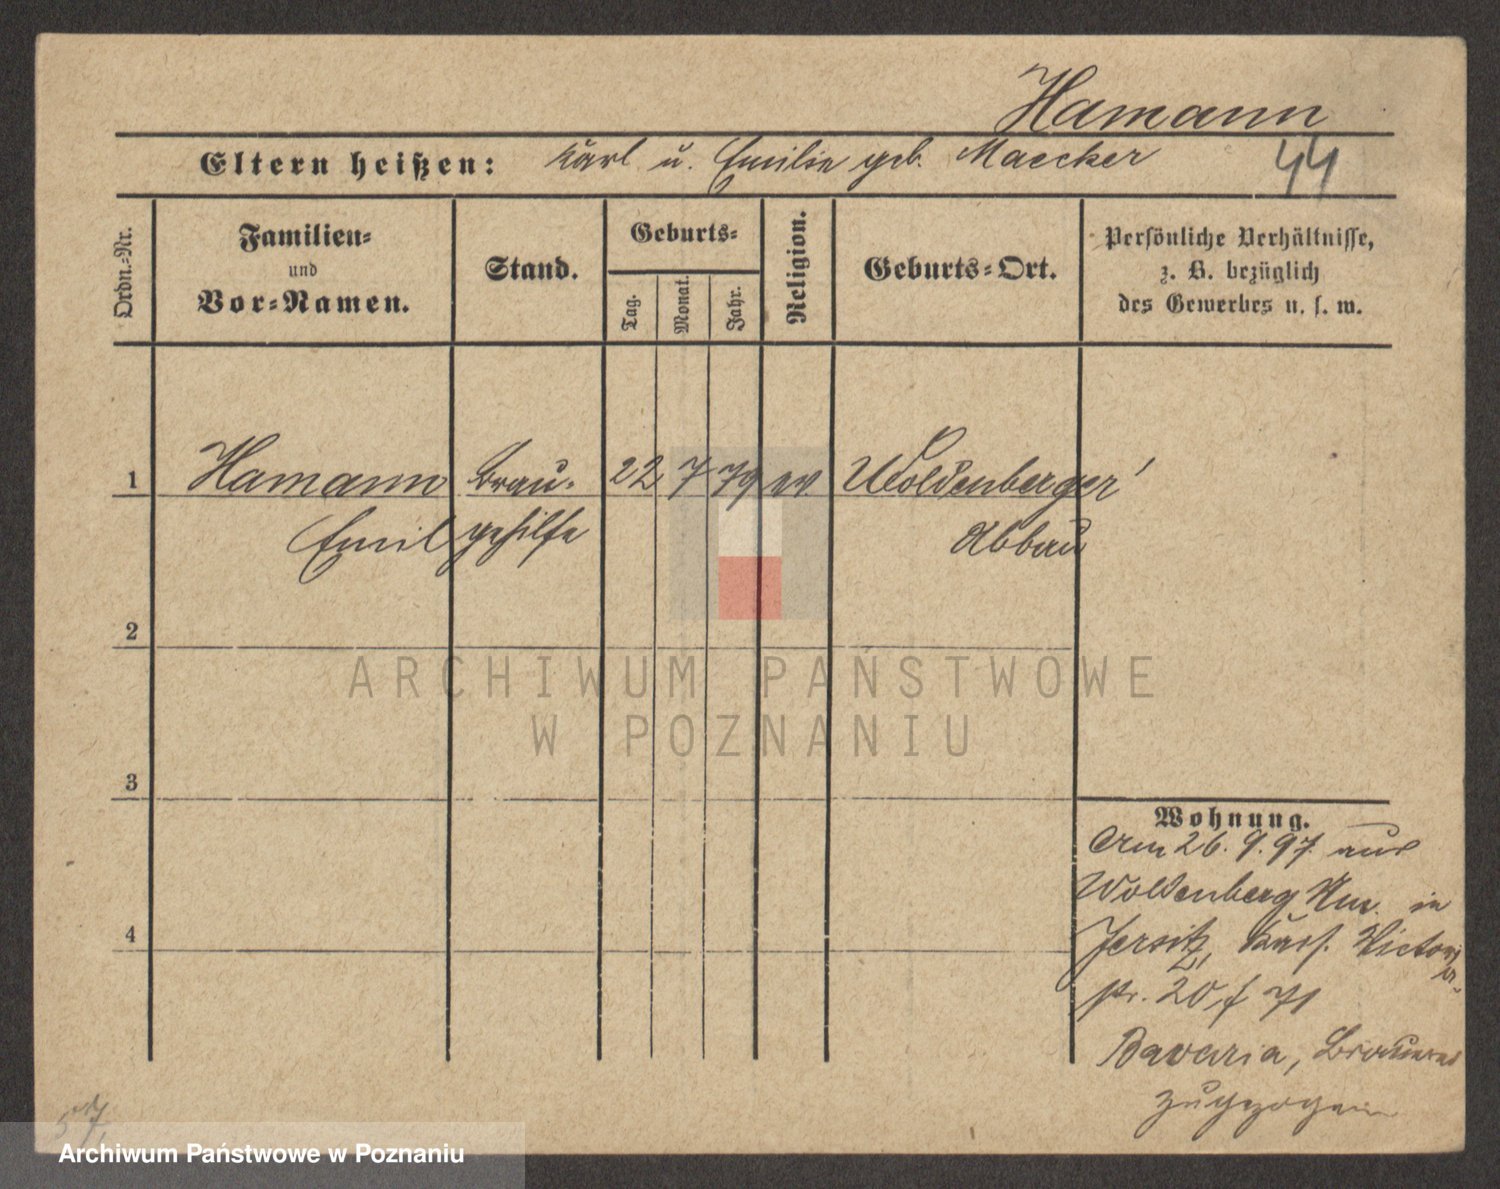 Hamann
Eltern heißen: Karl u. Emilie geb. Maecker
44
Ordn.-Nr.
Familien-
und
Vor-Namen.
Stand.
Geburts-
Tag.
Monat.
Jahr.
Religion.
Geburts-Ort.
Persönliche Verhältnisse,
z. B. bezüglich
des Gewerbes u. s. w.
1 Hamann Brau- 22 7 79 ev. Woldenberger
Emil gehilfe Abbau
2
ARCHIWUM PAŃSTWOWE
W POZNANIU
3
Wohnung.
Am 26.9.97 aus
Woldenberg Nm. in
Jersitz, Victoria
str. 20, 71
Bavaria, Brauerei
zugezogen
4
57,
Archiwum Państwowe w Poznaniu